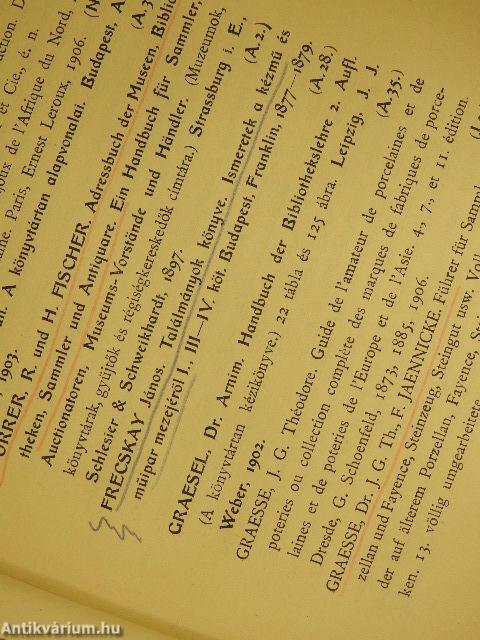 ction. D
et Cie, é. n.
joux de l'Afrique du Nord,
aine. Paris, Ernest Leroux, 1906.
A könyvtártan alapvonalai. Budapest, A
1903.
ORRER, R. und H. FISCHER. Adressbuch der Museen, Biblio
theken, Sammler und Antiquare. Ein Handbuch für Sammler,
Auctionatoren, Museums-Vorstände und Händler. (Muzeumok,
könyvtárak, gyűjtők és régiségkereskedők címtára.) Strassburg i. E.,
Schlesier & Schweikhardt, 1897. (A.2.)
FRECSKAY János. Találmányok könyve. Ismeretek a kézmű és
műipar mezejéről I., III—IV. köt. Budapest, Franklin, 1877—1879.
(A.28.)
GRAESEL, Dr. Arnim. Handbuch der Bibliothekslehre 2. Aufl.
(A könyvtártan kézikönyve.) 22 tábla és 125 ábra. Leipzig, J. J.
Weber, 1902. (A.35.)
GRAESSE, J. G. Théodore. Guide de l'amateur de porcelaines et de
poteries ou collection complète des marques de fabriques de porce-
laines et de poteries de l'Europe et de l'Asie. 4., 7., et 11. édition.
Dresde, G. Schoenfeld, 1873, 1885, 1906.
GRAESSE, Dr. J. G. Th., F. JAENNICKE. Führer für Samml
zellan und Fayence, Steinzeug, Steingut usw. Voll
der auf älterem Porzellan, Fayence, Stei
ken. 13. völlig umgearbeitete
Antikvárium.hu